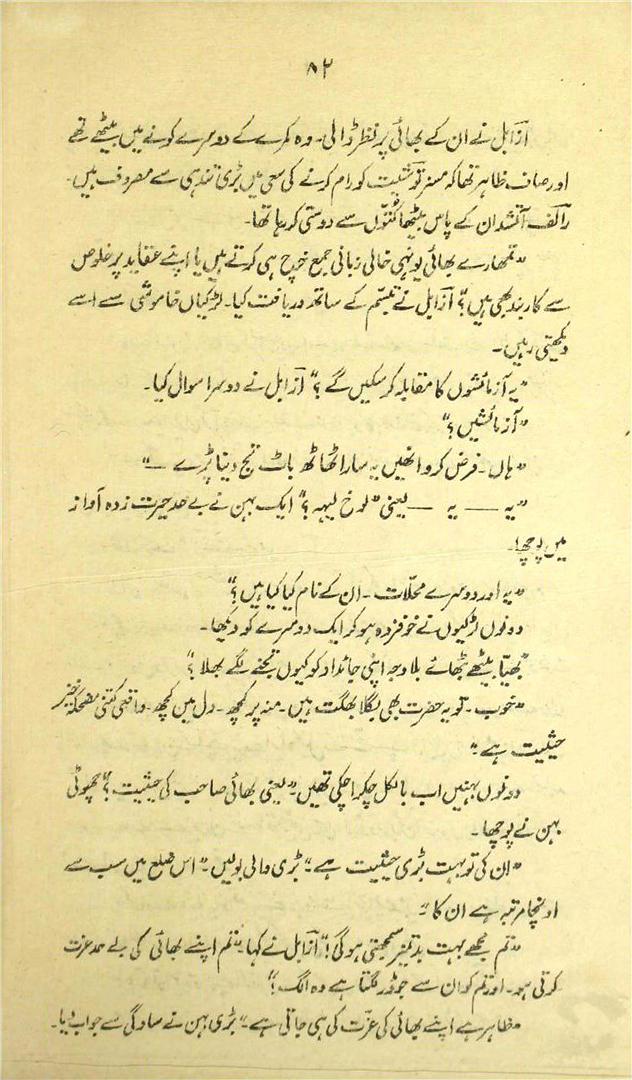 ۸۲
آزابل نے ان کے بھائی پر نظر ڈالی۔ وہ کمرے کے دوسرے کونے میں بیٹھے تھے
اور صاف ظاہر تھا کہ مسز توشیت کو رام کرنے کی سعی میں بڑی تندہی سے مصروف ہیں۔
رالف آتشدان کے پاس بیٹھا کتّوں سے دوستی کر رہا تھا۔
”تمھارے بھائی یونہی خالی زبانی جمع خرچ ہی کرتے ہیں یا اپنے عقاید پر خلوص
سے کاربند بھی ہیں؟“ آزابل نے تبسّم کے ساتھ دریافت کیا۔ لڑکیاں خاموشی سے اسے
دیکھتی رہیں۔
”یہ آزمائشوں کا مقابلہ کر سکیں گے؟“ آزابل نے دوسرا سوال کیا۔
”آزمائشیں؟“
”ہاں۔ فرض کرو انھیں یہ سارا ٹھاٹھ باٹ تج دینا پڑے —“
”یہ — یہ — یعنی ”لوخ لیہہ؟“ ایک بہن نے بے حد حیرت زدہ آواز
میں پوچھا۔
”یہ اور دوسرے محلّات۔ ان کے نام کیا کیا ہیں؟“
دونوں لڑکیوں نے خوفزدہ ہو کر ایک دوسرے کو دیکھا۔
”بھیّا بیٹھے بٹھائے بلاوجہ اپنی جائداد کو کیوں تجنے لگے بھلا؟“
”خوب۔ تو یہ حضرت بھی بگلا بھگت ہیں۔ منہ پر کچھ۔ دل میں کچھ۔ واقعی کتنی مضحکہ خیز
حیثیت ہے۔“
دونوں بہنیں اب بالکل چکرا چکی تھیں۔ ”یعنی بھائی صاحب کی حیثیت؟“ چھوٹی
بہن نے پوچھا۔
”ان کی تو بہت بڑی حیثیت ہے۔“ بڑی والی بولیں۔ ”اس ضلع میں سب سے
اونچا مرتبہ ہے ان کا۔“
”تم مجھے بہت بدتمیز سمجھتی ہوگی!“ آزابل نے کہا۔ ”تم اپنے بھائی کی بے حد عزت
کرتی ہو۔ اور تم کو ان سے جو ڈر لگتا ہے وہ الگ؟“
”ظاہر ہے اپنے بھائی کی عزّت کی ہی جاتی ہے۔“ بڑی بہن نے سادگی سے جواب دیا۔